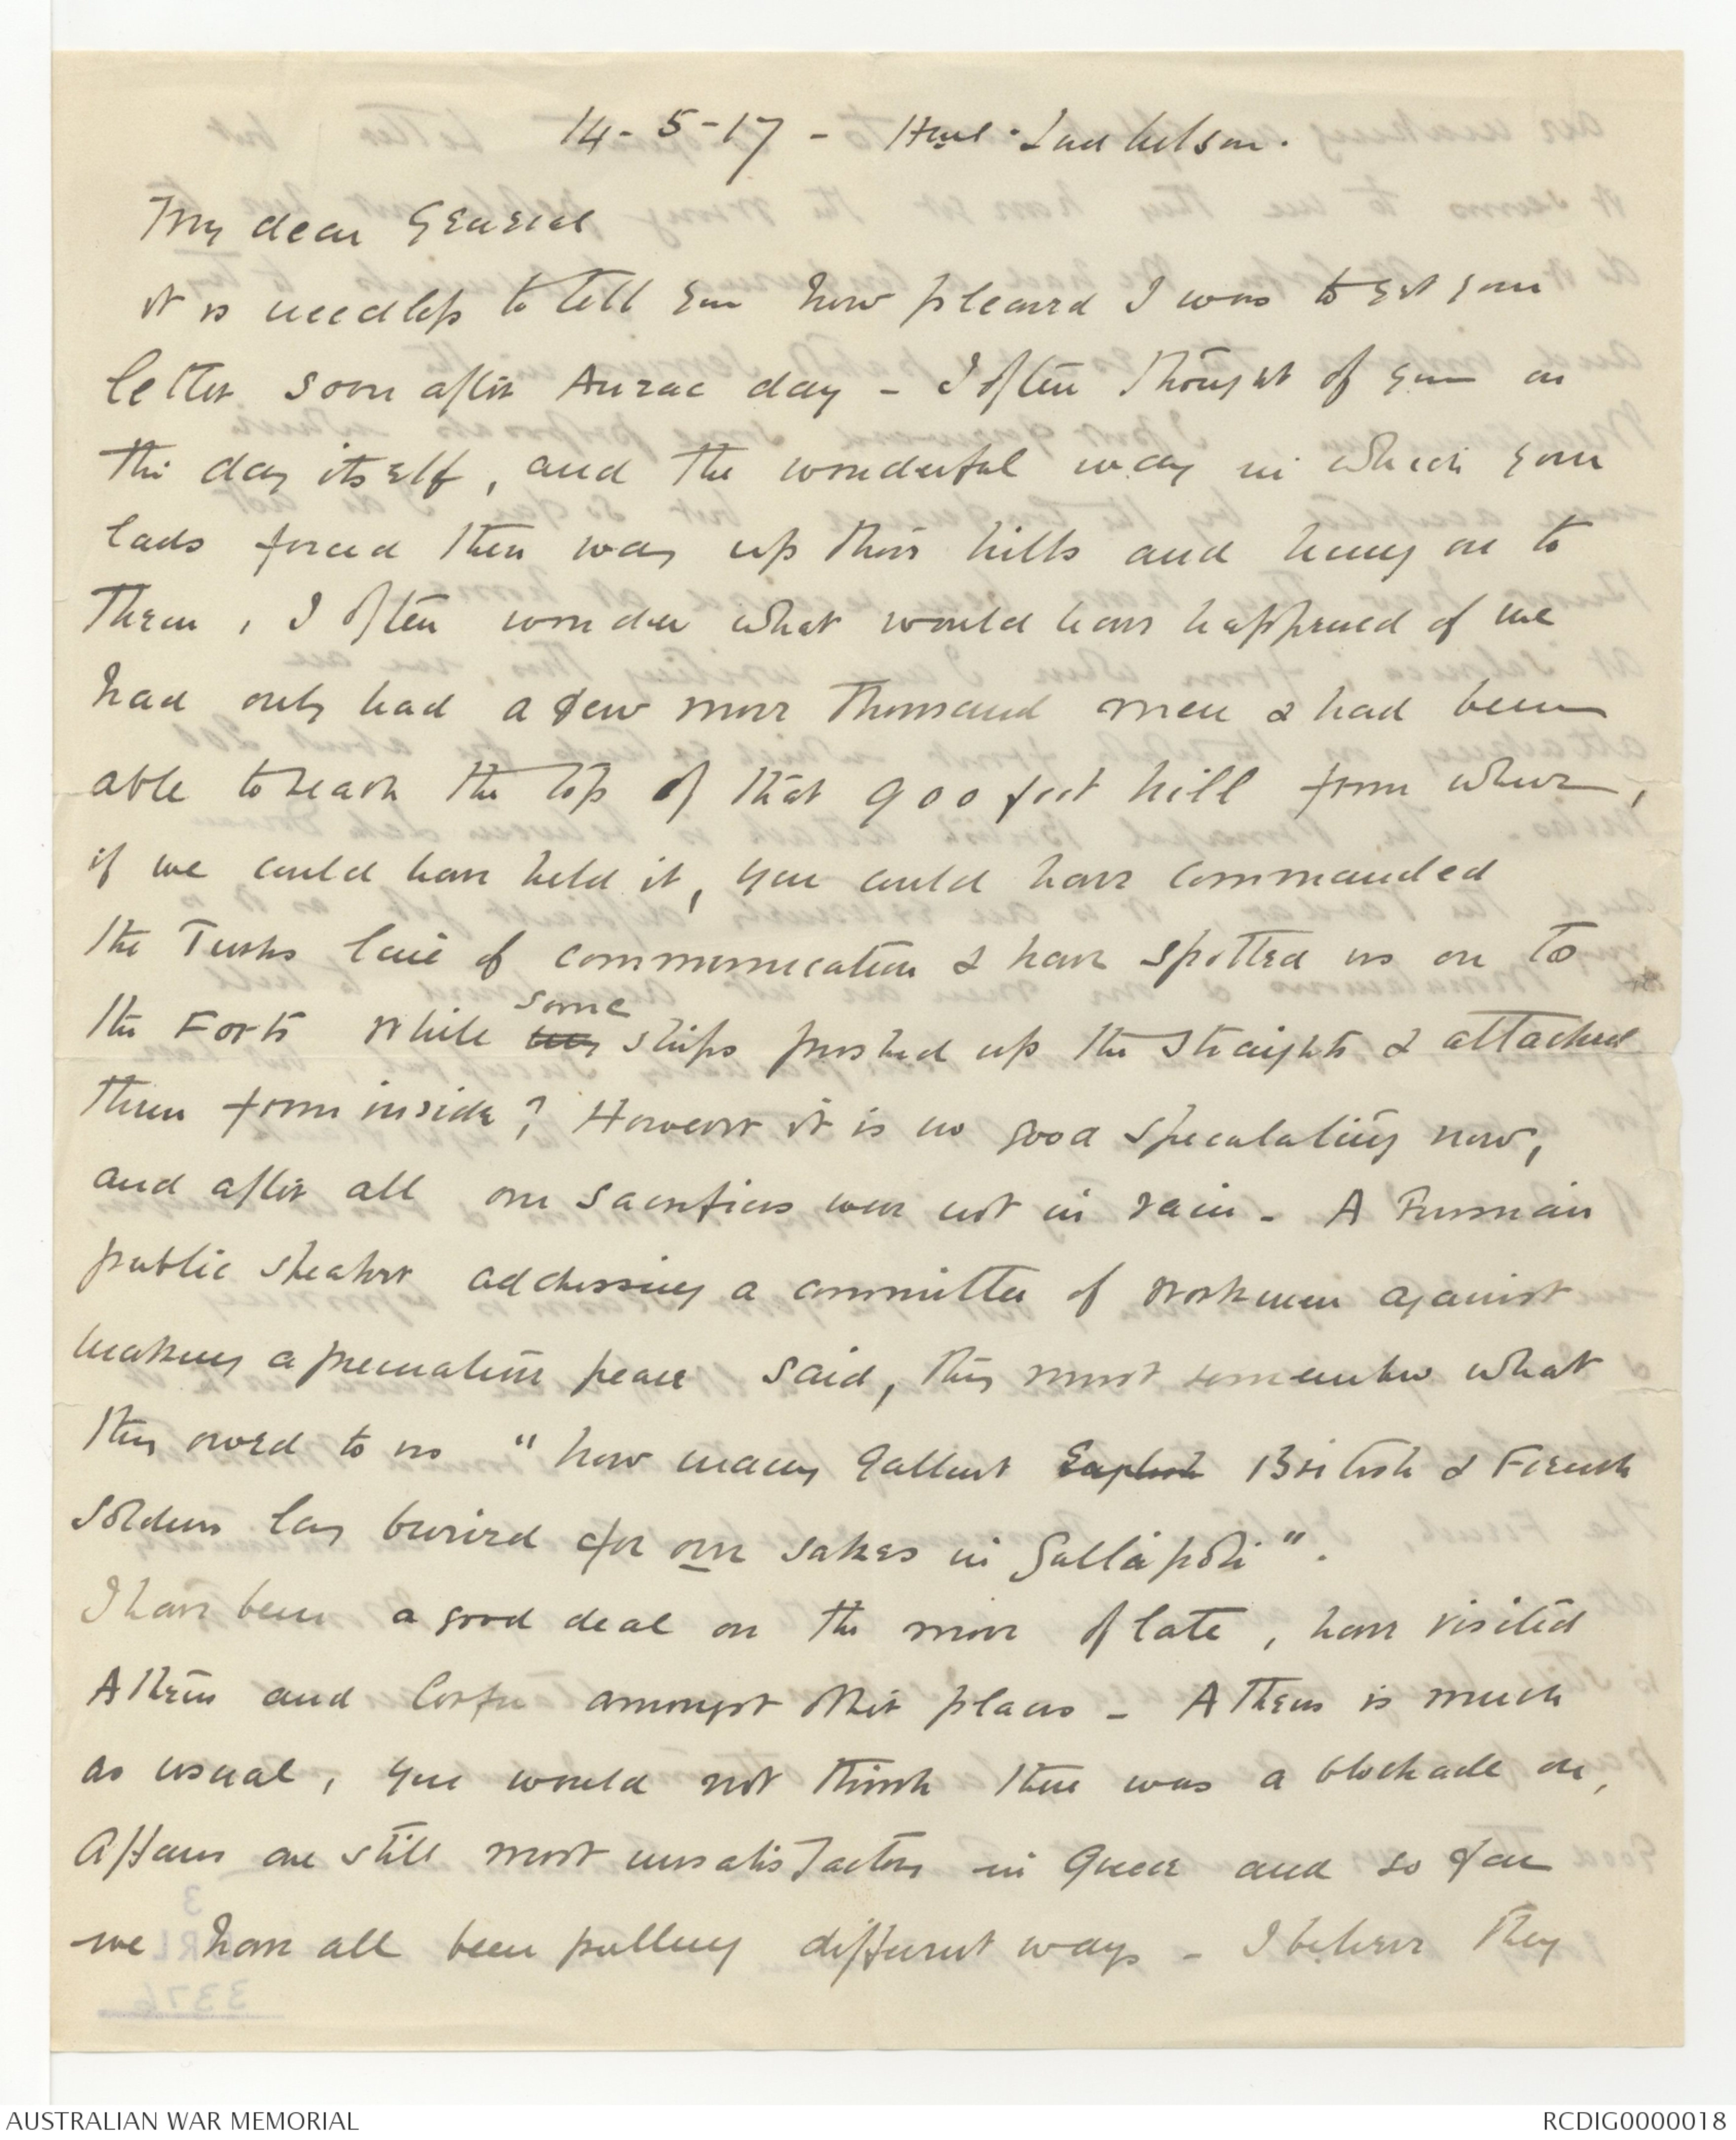 14-5-17 - HMS. Lord Nelson.
My dear General
it is needless to tell you how pleased I was to get your
letter soon after Anzac day - I often thought of you on
the day itself, and the wonderful way in which your
lads forced their way up those hills and hung on to
them, I often wonder what would have happened if we
had only had a few more thousand men & had been
able to reach the top of that 900 feet hill from where,
if we could have held it, you could have commanded
the Turks line of communication & have spotted us on to
the Forts while some ships pushed up the straights & attacked
them from inside? However it is no good speculating now,
and after all our sacrifices were not in vain - A Russian
public speaker addressing a committee of workmen against
making a premature peace said, they must remember what
they owed to us "how many gallant English British & French
soldiers lay buried for our sakes in Gallipoli".
I have been a good deal on the move of late, have visited
Athens and Corfu amongst other places - Athens is much
as usual, you would not think there was a blockade on,
Affairs are still most unsatisfactory in Greece and so far
we have all been pulling different ways - I believe they
3
DRL
3376
AUSTRALIAN WAR MEMORIAL
RCDIG0000018